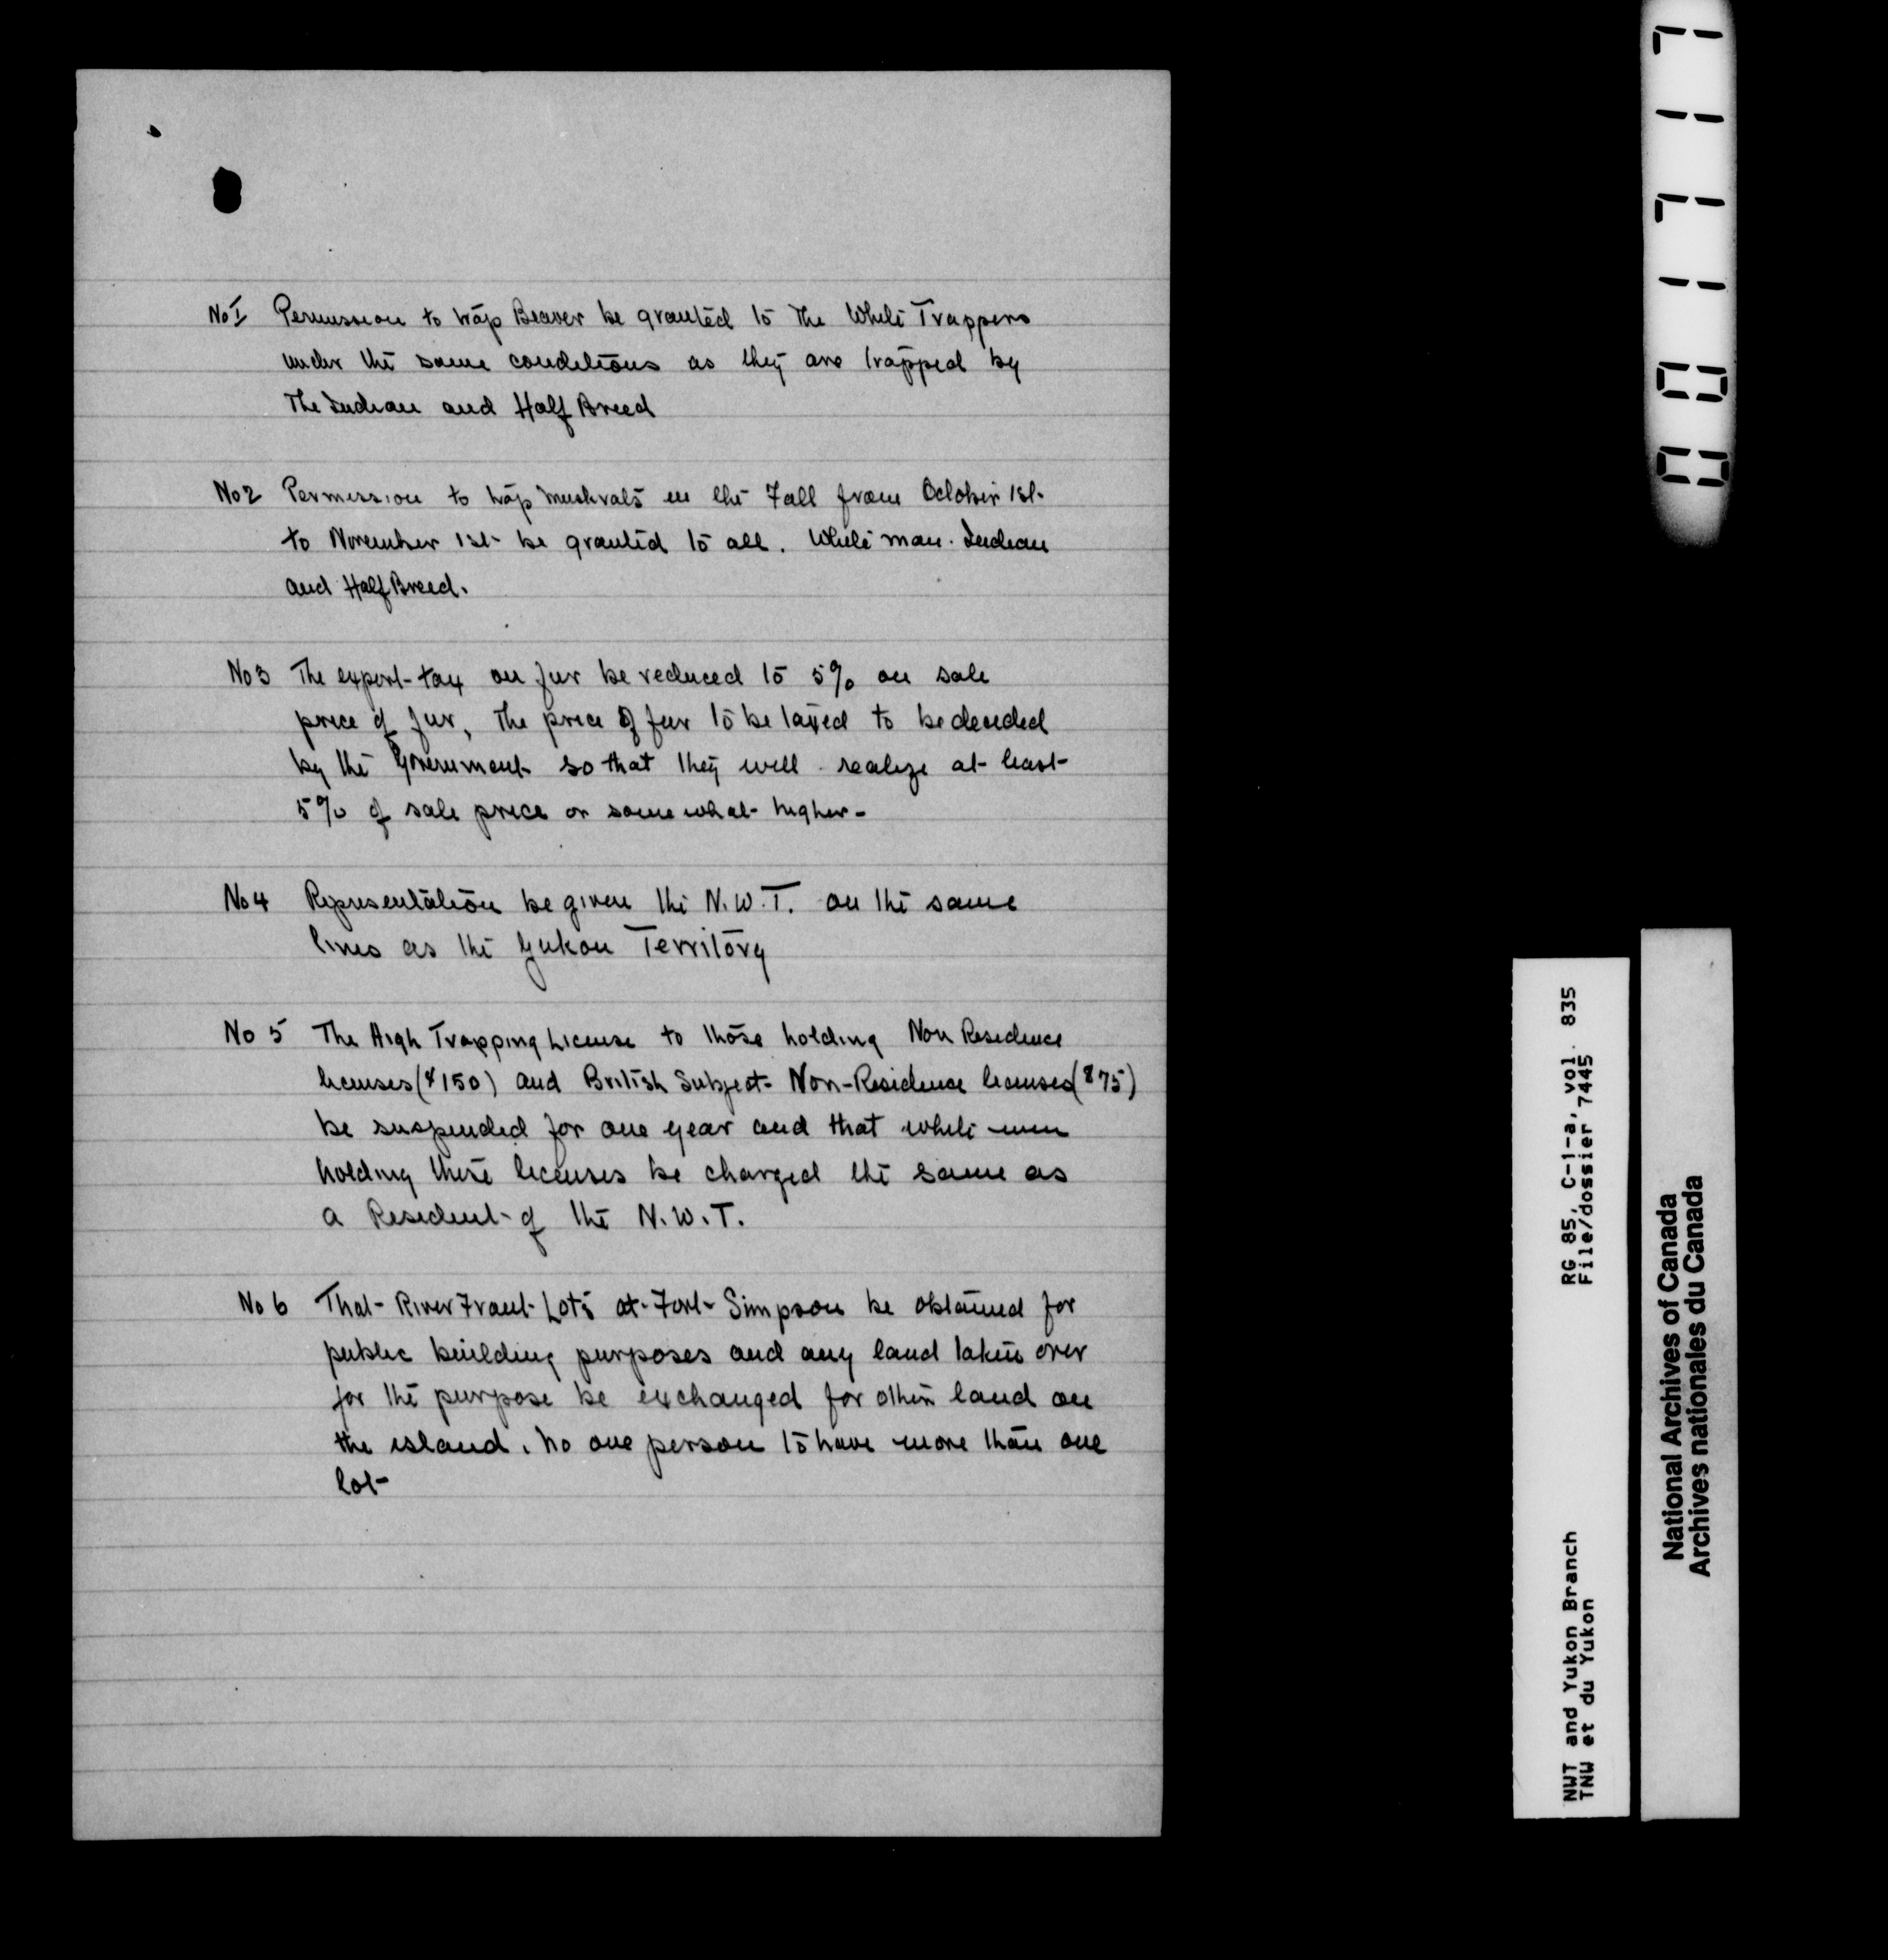 No I Permission to trap Beaver be granted to the White Trappers
under the same conditions as they are trapped by
The Indian and Half Breed
No 2 Permission to trap muskrats in the Fall from October 1st
to November 1st be granted to all. White man. Indian
and Half Breed.
No 3 The export tax on fur be reduced to 5% on sale
price of fur, The price of fur to be taxed to be decided
by the Government so that they will realize at least
5% of sale price or somewhat higher -
No 4 Representation be given the N.W.T. on the same
lines as the Yukon Territory
No 5 The High Trapping License to those holding Non Residence
licenses ($150) and British Subject Non-Residence licenses ($75)
be suspended for one year and that white men
holding these licenses be charged the same as
a Resident of the N.W.T.
No 6 That River Front Lots at Fort Simpson be obtained for
public building purposes and any land taken over
for the purpose be exchanged for other land on
the island. No one person to have more than one
lot
NWT and Yukon Branch RG 85, C-1-a, vol. 835
TNW et du Yukon File/dossier 7445
National Archives of Canada
Archives nationales du Canada